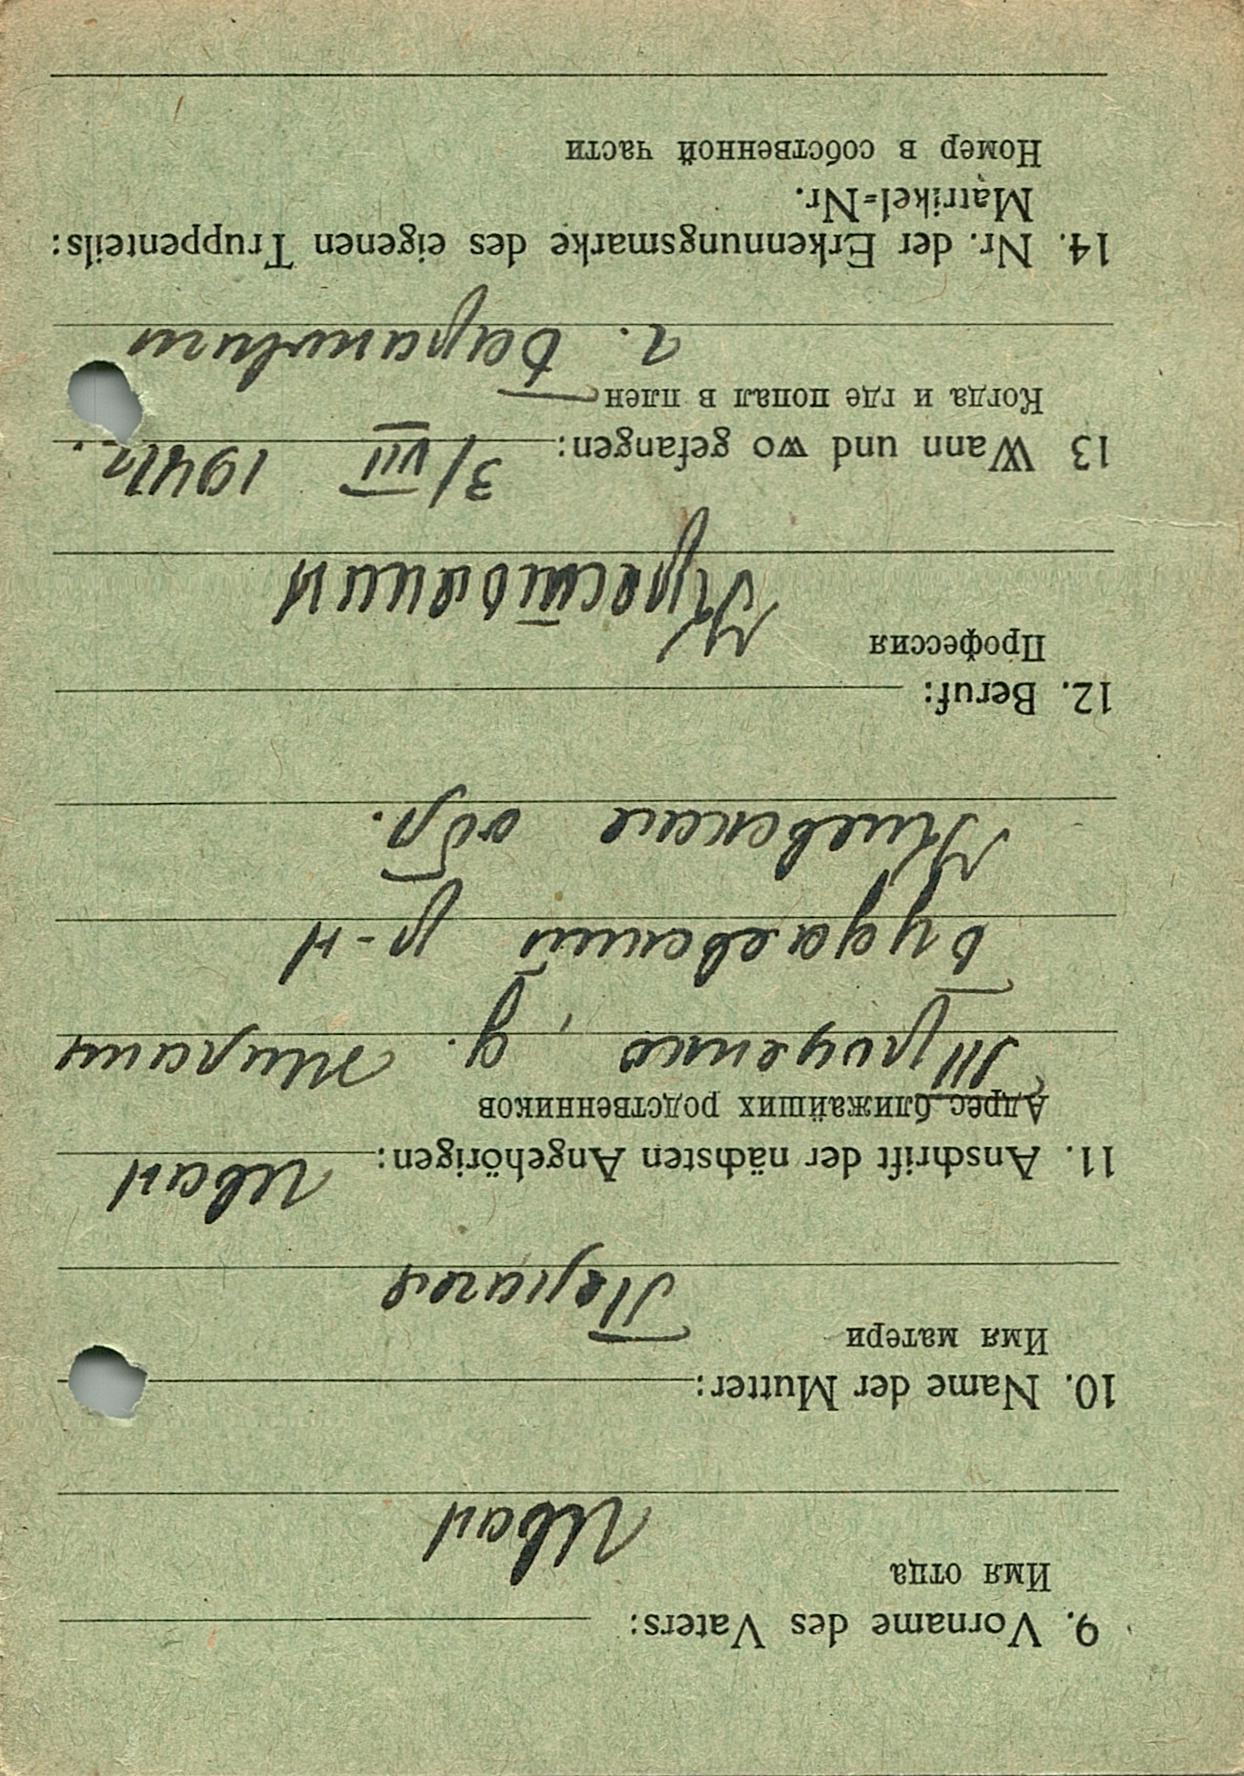 9. Vorname des Vaters:
Имя отца
Иван
10. Name der Mutter:
Имя матери
Пелагея
11. Anschrift der nächsten Angehörigen: Иван
Адрес ближайших родственников
Троценко, д.
Будаевский р-н
Киевская обл.
12. Beruf:
Профессия
Крестьянин
13 Wann und wo gefangen: 3/VII 1941г.
Когда и где попал в плен
г. Барановичи
14. Nr. der Erkennungsmarke des eigenen Truppenteils:
Matrikel-Nr.
Номер в собственной части